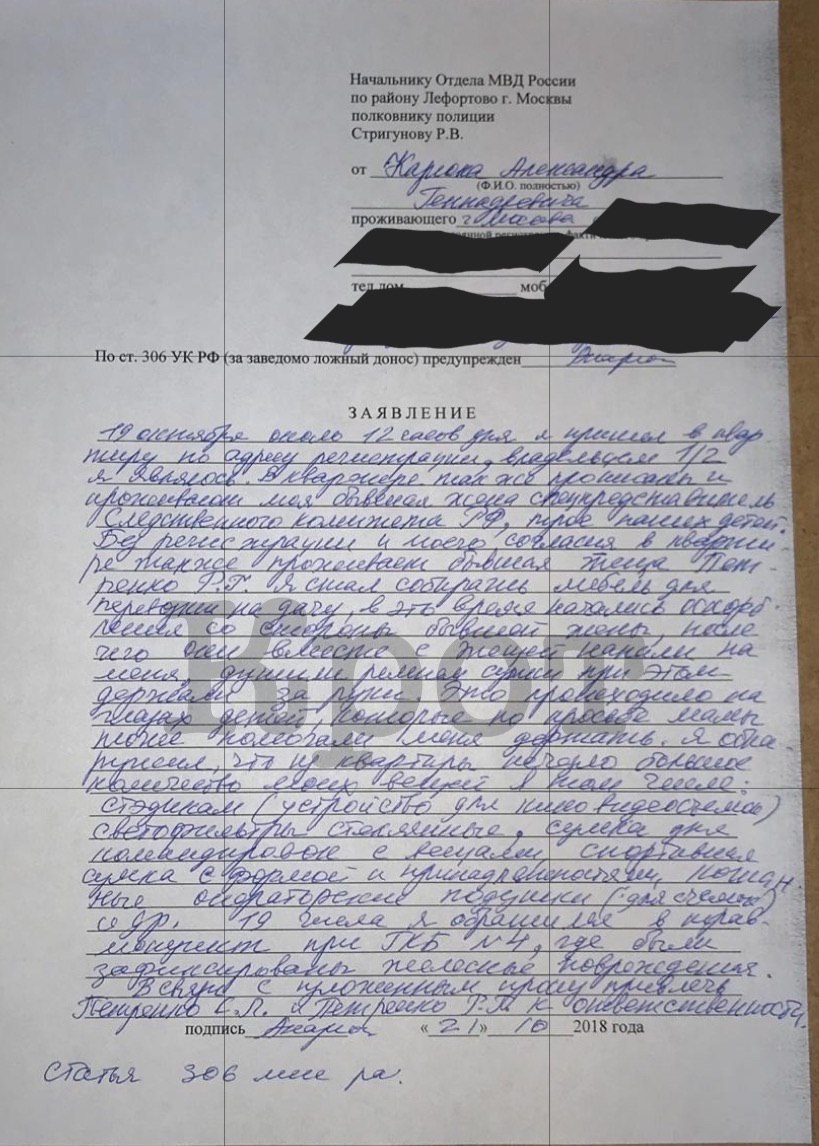 Начальнику Отдела МВД России
по району Лефортово г. Москвы
полковнику полиции
Стригунову Р.В.
от Карюка Александра
(Ф.И.О. полностью)
Геннадьевича
проживающего г Москва
тел дом моб
По ст. 306 УК РФ (за заведомо ложный донос) предупрежден
ЗАЯВЛЕНИЕ
19 октября около 12 часов дня я пришел в квар-
тиру по адресу регистрации, владельцем 1/2
я являюсь. В квартире также прописаны и
проживают моя бывшая жена спецпредставитель
Следственного комитета РФ, трое наших детей.
Без регистрации и моего согласия в кварти-
ре также проживает бывшая теща Пет-
ренко Р.Г. Я стал собирать мебель для
перевозки на дачу, в это время начались оскорб-
ления со стороны бывшей жены, после
чего они вместе с тещей напали на
меня, душили ремнем сумки при этом
держали за руки. Это происходило на
глазах детей, которые по просьбе мамы
тоже помогали меня держать. Я обна
ружил, что из квартиры пропало большое
количество моих вещей в том числе:
стэдикам (устройство для кино видеосъемок)
светофильтры стеклянные, сумка для
командировок с вещами, спортивная
сумка с формой и принадлежностями, кожан-
ные операторские подушки (для съемок)
и др. 19 числа я обратился в трав-
мопункт при ГКБ №4, где были
зафиксированы телесные повреждения.
В связи с изложенным прошу привлечь
Петренко С.Л. и Петренко Р.Г. к ответственности.
подпись «21» 10 2018 года
Статья 306 мне ра.
Крот